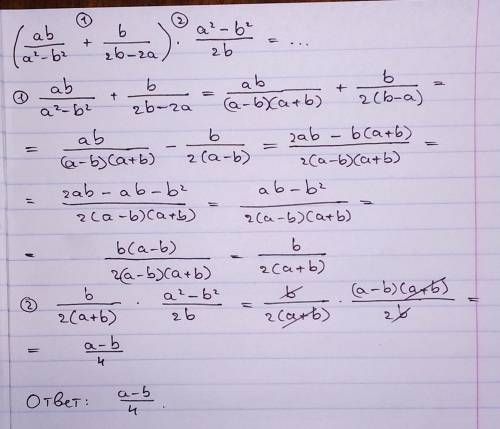 ① ②
(ab/(a²-b²) + b/(2b-2a)) · (a²-b²)/2b = ...
① ab/(a²-b²) + b/(2b-2a) = ab/((a-b)(a+b)) + b/(2(b-a)) =
= ab/((a-b)(a+b)) - b/(2(a-b)) = (2ab - b(a+b))/(2(a-b)(a+b)) =
= (2ab - ab - b²)/(2(a-b)(a+b)) = (ab - b²)/(2(a-b)(a+b)) =
= b(a-b)/(2(a-b)(a+b)) = b/(2(a+b))
② b/(2(a+b)) · (a²-b²)/2b = b/(2(a+b)) · (a-b)(a+b)/2b =
= (a-b)/4
Ответ: (a-b)/4.